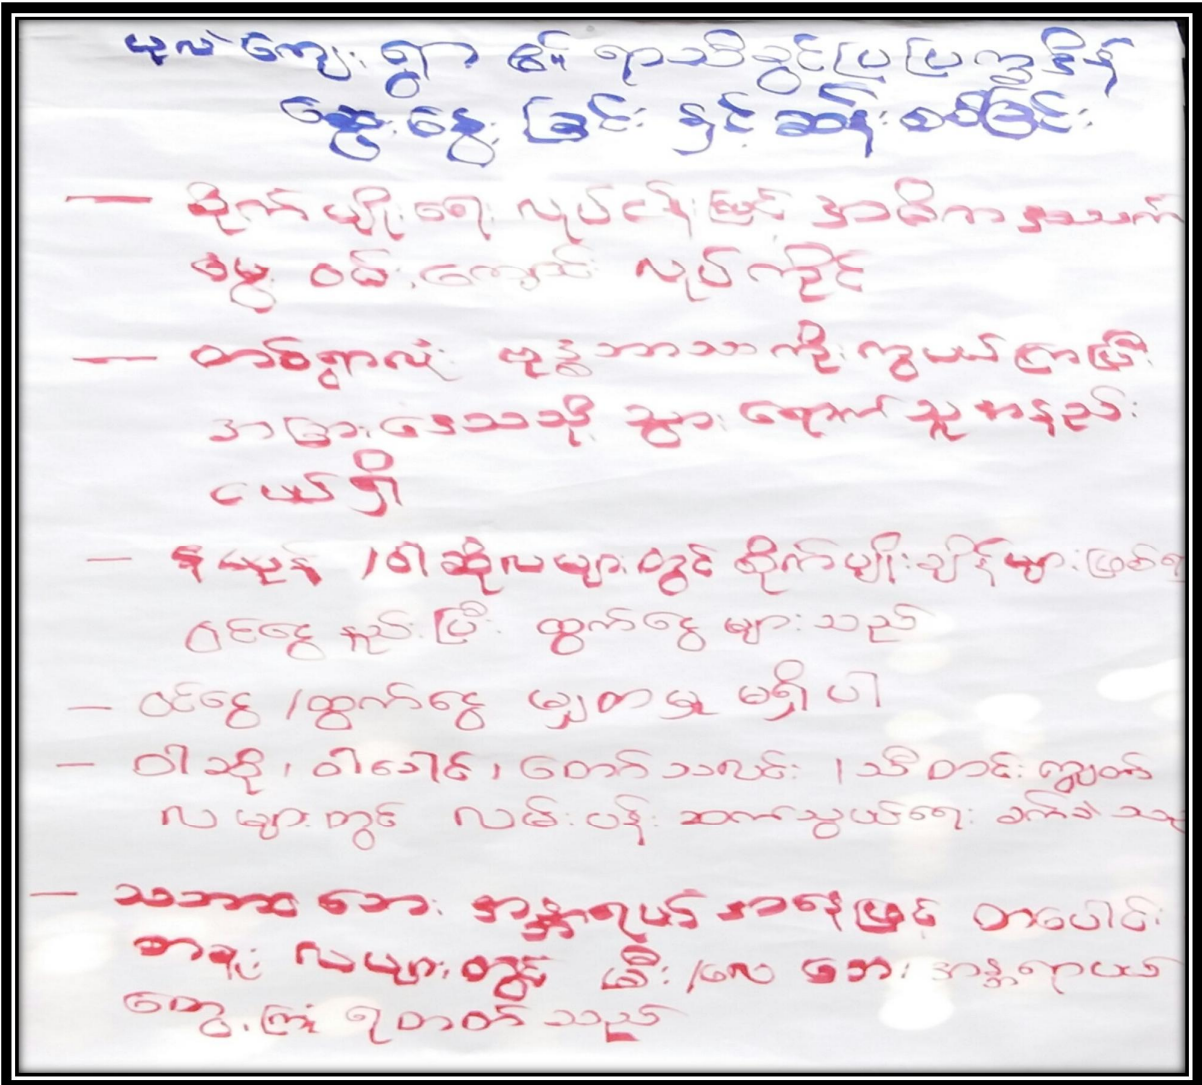 ယုလဲကျေးရွာ ၏ ရာသီခွင်ပြ ပြက္ခဒိန်
ဆွေးနွေးခြင်း နှင့် ဆန်းစစ်ခြင်း
— စိုက်ပျိုးရေး လုပ်ငန်းဖြင့် အဓိက အသက်
မွေး ဝမ်းကျောင်း လုပ်ကိုင်
— တစ်ရွာလုံး ဗုဒ္ဓဘာသာကိုးကွယ်ကြပြီး
အခြားဒေသသို့ သွားရောက်သူ အနည်း
ငယ်ရှိ
— နယုန် /ဝါဆိုလများတွင် စိုက်ပျိုးချိန်များဖြစ်၍
ဝင်ငွေနည်းပြီး ထွက်ငွေများသည်
— ဝင်ငွေ /ထွက်ငွေ မျှတမှု မရှိပါ
— ဝါဆို၊ ဝါခေါင်၊ တော်သလင်း ၊သီတင်းကျွတ်
လများတွင် လမ်းပန်း ဆက်သွယ်ရေး ခက်ခဲသည်
— သဘာဝဘေး အန္တရာယ် အနေဖြင့် တပေါင်း
တန်ခူး လများတွင် မီး /လေ ဘေး အန္တရာယ်
တွေ့ကြုံ ရတတ်သည်